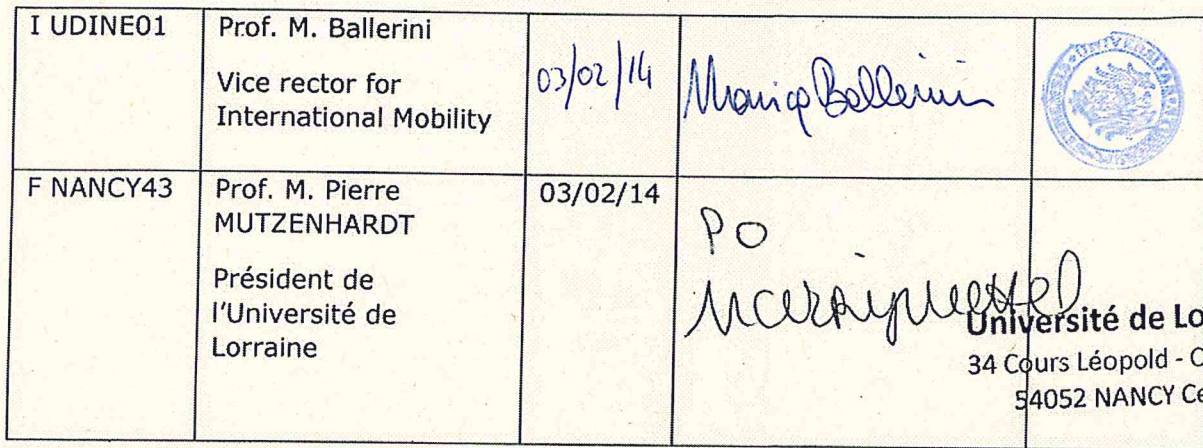 I UDINE01
Prof. M. Ballerini
Vice rector for
International Mobility
03/02/14
Monica Ballerini
F NANCY43
Prof. M. Pierre
MUTZENHARDT
Président de
l'Université de
Lorraine
03/02/14
PO
Université de Lo
34 Cours Léopold - C
54052 NANCY Ce